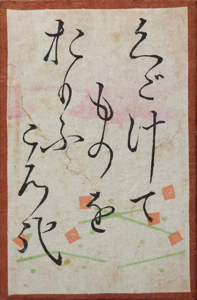 くだけて
ものを
おもふ
ころ哉